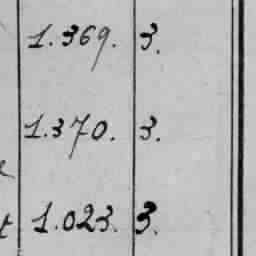 1.369. 3.
1.370. 3.
1.023. 3.